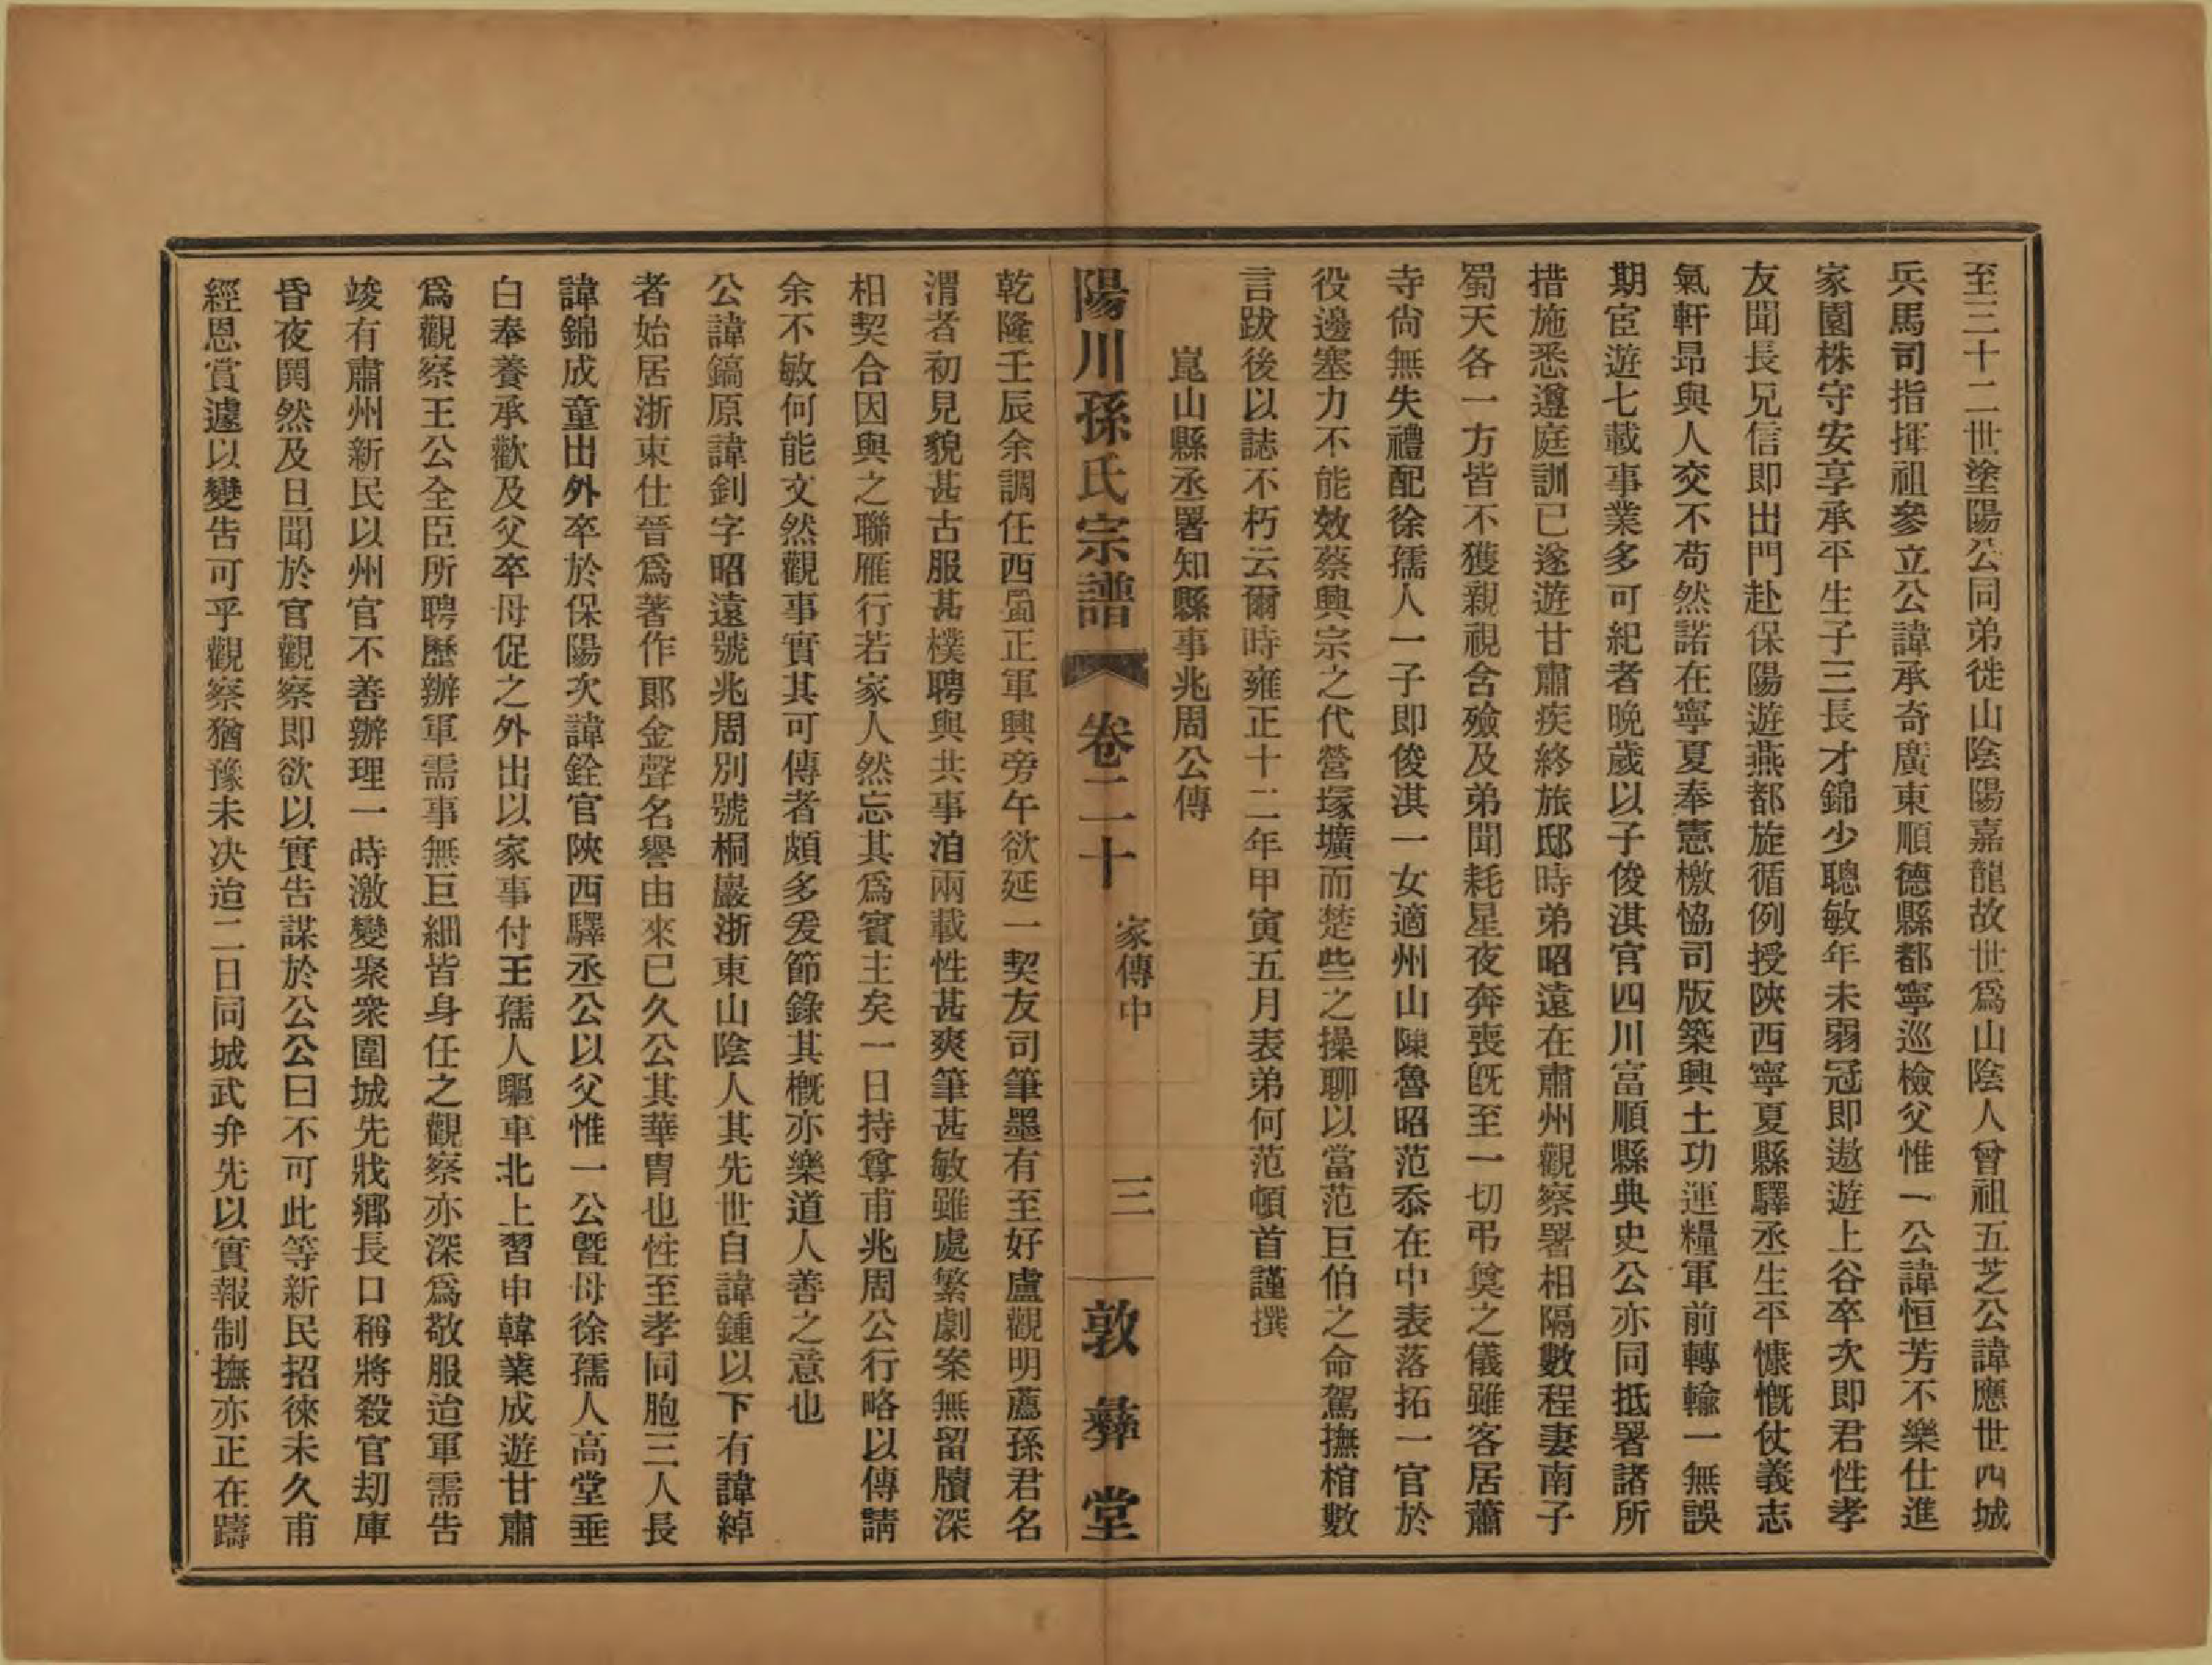 至三十二世塗陽公同弟徙山陰陽嘉龍故世爲山陰人曾祖五芝公諱應世西城
兵馬司指揮祖參立公諱承奇廣東順德縣都寧巡檢父惟一公諱恒芳不樂仕進
家園株守安享承平生子三長才錦少聰敏年未弱冠即遨遊上谷卒次即君性孝
友聞長兄信即出門赴保陽遊燕都旋循例授陝西寧夏縣驛丞生平慷慨仗義志
氣軒昂與人交不苟然諾在寧夏奉憲檄恊司版築興土功運糧軍前轉輸一無誤
期宦遊七載事業多可紀者晚歲以子俊淇官四川富順縣典史公亦同抵署諸所
措施悉遵庭訓已遂遊甘肅疾終旅邸時弟昭遠在肅州觀察署相隔數程妻南子
蜀天各一方皆不獲親視含殮及弟聞耗星夜奔喪旣至一切弔奠之儀雖客居蕭
寺尙無失禮配徐孺人一子即俊淇一女適州山陳魯昭范忝在中表落拓一官於
役邊塞力不能效蔡興宗之代營塚壙而楚些之操聊以當范巨伯之命駕撫棺數
言跋後以誌不朽云爾時雍正十二年甲寅五月表弟何范頓首謹撰
崑山縣丞署知縣事兆周公傳
陽川孫氏宗譜 卷二十 家傳中 三 敦彝堂
乾隆壬辰余調任西蜀正軍興旁午欲延一契友司筆墨有至好盧觀明薦孫君名
渭者初見貌甚古服甚樸聘與共事洎兩載性甚爽筆甚敏雖處繁劇案無留牘深
相契合因與之聯雁行若家人然忘其爲賓主矣一日持尊甫兆周公行略以傳請
余不敏何能文然觀事實其可傳者頗多爰節錄其槪亦樂道人善之意也
公諱鎬原諱釗字昭遠號兆周別號桐巖浙東山陰人其先世自諱鍾以下有諱綽
者始居浙東仕晉爲著作郞金聲名譽由來已久公其華胄也性至孝同胞三人長
諱錦成童出外卒於保陽次諱銓官陝西驛丞公以父惟一公曁母徐孺人高堂垂
白奉養承歡及父卒母促之外出以家事付王孺人驅車北上習申韓業成遊甘肅
爲觀察王公全臣所聘歷辦軍需事無巨細皆身任之觀察亦深爲敬服迨軍需告
竣有肅州新民以州官不善辦理一時激變聚衆圍城先戕鄕長口稱將殺官刼庫
昏夜閧然及旦聞於官觀察即欲以實告謀於公公曰不可此等新民招徠未久甫
經恩賞遽以變告可乎觀察猶豫未决迨二日同城武弁先以實報制撫亦正在躊